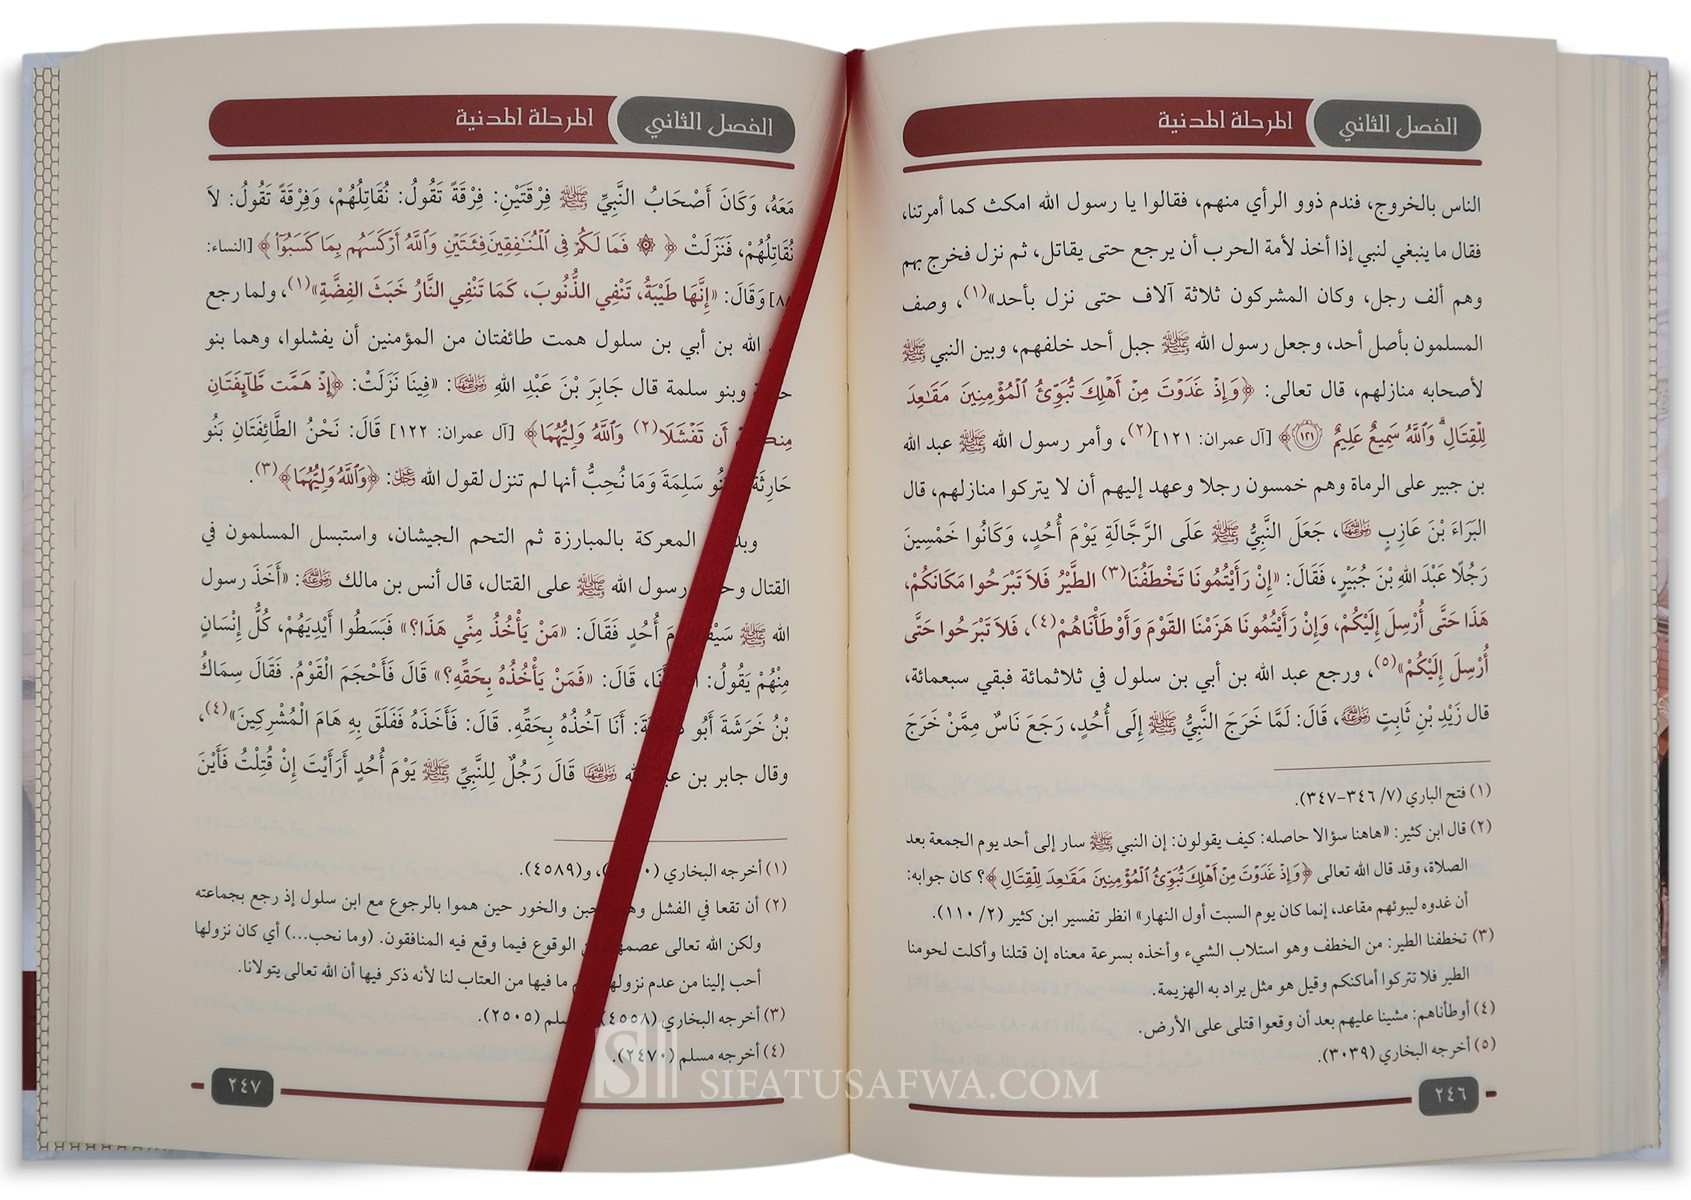 الفصل الثاني المرحلة المدنية
الناس بالخروج، فندم ذوو الرأي منهم، فقالوا يا رسول الله امكث كما أمرتنا،
فقال ما ينبغي لنبي إذا أخذ لأمة الحرب أن يرجع حتى يقاتل، ثم نزل فخرج بهم
وهم ألف رجل، وكان المشركون ثلاثة آلاف حتى نزل بأحد»(١)، وصف
المسلمون بأصل أحد، وجعل رسول الله ﷺ جبل أحد خلفهم، وبين النبي ﷺ
لأصحابه منازلهم، قال تعالى: ﴿وَإِذْ غَدَوْتَ مِنْ أَهْلِكَ تُبَوِّئُ الْمُؤْمِنِينَ مَقَاعِدَ
لِلْقِتَالِ وَاللَّهُ سَمِيعٌ عَلِيمٌ ١٢١﴾ [آل عمران: ١٢١](٢)، وأمر رسول الله ﷺ عبد الله
بن جبير على الرماة وهم خمسون رجلا وعهد إليهم أن لا يتركوا منازلهم، قال
البَرَاءَ بْنَ عَازِبٍ رَضِيَ اللَّهُ عَنْهُمَا، جَعَلَ النَّبِيُّ ﷺ عَلَى الرَّجَّالَةِ يَوْمَ أُحُدٍ، وَكَانُوا خَمْسِينَ
رَجُلًا عَبْدَ اللهِ بْنَ جُبَيْرٍ، فَقَالَ: «إِنْ رَأَيْتُمُونَا تَخْطَفُنَا(٣) الطَّيْرُ فَلاَ تَبْرَحُوا مَكَانَكُمْ،
هَذَا حَتَّى أُرْسِلَ إِلَيْكُمْ، وَإِنْ رَأَيْتُمُونَا هَزَمْنَا القَوْمَ وَأَوْطَأْنَاهُمْ(٤)، فَلاَ تَبْرَحُوا حَتَّى
أُرْسِلَ إِلَيْكُمْ»(٥)، ورجع عبد الله بن أبي بن سلول في ثلاثمائة فبقي سبعمائة،
قال زَيْدِ بْنِ ثَابِتٍ رَضِيَ اللَّهُ عَنْهُ، قَالَ: لَمَّا خَرَجَ النَّبِيُّ ﷺ إِلَى أُحُدٍ، رَجَعَ نَاسٌ مِمَّنْ خَرَجَ
(١) فتح الباري (٧/ ٣٤٦-٣٤٧).
(٢) قال ابن كثير: «هاهنا سؤالا حاصله: كيف يقولون: إن النبي ﷺ سار إلى أحد يوم الجمعة بعد
الصلاة، وقد قال الله تعالى ﴿وَإِذْ غَدَوْتَ مِنْ أَهْلِكَ تُبَوِّئُ الْمُؤْمِنِينَ مَقَاعِدَ لِلْقِتَالِ﴾؟ كان جوابه:
أن غدوه ليبوئهم مقاعد، إنما كان يوم السبت أول النهار» انظر تفسير ابن كثير (٢/ ١١٠).
(٣) تخطفنا الطير: من الخطف وهو استلاب الشيء وأخذه بسرعة معناه إن قتلنا وأكلت لحومنا
الطير فلا تتركوا أماكنكم وقيل هو مثل يراد به الهزيمة.
(٤) أوطأناهم: مشينا عليهم بعد أن وقعوا قتلى على الأرض.
(٥) أخرجه البخاري (٣٠٣٩).
٢٤٦
الفصل الثاني المرحلة المدنية
مَعَهُ، وَكَانَ أَصْحَابُ النَّبِيِّ ﷺ فِرْقَتَيْنِ: فِرْقَةً تَقُولُ: نُقَاتِلُهُمْ، وَفِرْقَةً تَقُولُ: لاَ
نُقَاتِلُهُمْ، فَنَزَلَتْ ﴿ ۞ فَمَا لَكُمْ فِي الْمُنَافِقِينَ فِئَتَيْنِ وَاللَّهُ أَرْكَسَهُم بِمَا كَسَبُوا﴾ [النساء:
٨٨] وَقَالَ: «إِنَّهَا طَيْبَةُ، تَنْفِي الذُّنُوبَ، كَمَا تَنْفِي النَّارُ خَبَثَ الفِضَّةِ»(١)، ولما رجع
الله بن أبي بن سلول همت طائفتان من المؤمنين أن يفشلوا، وهما بنو
وبنو سلمة قال جَابِرَ بْنَ عَبْدِ اللهِ رَضِيَ اللَّهُ عَنْهُمَا: «فِينَا نَزَلَتْ: ﴿إِذْ هَمَّت طَّائِفَتَانِ
أَن تَفْشَلَا(٢) وَاللَّهُ وَلِيُّهُمَا﴾ [آل عمران: ١٢٢] قَالَ: نَحْنُ الطَّائِفَتَانِ بَنُو
حَارِثَةَ سَلِمَةَ وَمَا نُحِبُّ أنها لم تنزل لقول الله عز وجل: ﴿وَاللَّهُ وَلِيُّهُمَا﴾(٣).
المعركة بالمبارزة ثم التحم الجيشان، واستبسل المسلمون في
القتال رسول الله ﷺ على القتال، قال أنس بن مالك رَضِيَ اللَّهُ عَنْهُ: «أَخَذَ رسول
الله ﷺ أُحُدٍ فَقَالَ: «مَنْ يَأْخُذُ مِنِّي هَذَا؟» فَبَسَطُوا أَيْدِيَهُمْ، كُلُّ إِنْسَانٍ
مِنْهُمْ يَقُولُ: أَنَا، قَالَ: «فَمَنْ يَأْخُذُهُ بِحَقِّهِ؟» قَالَ فَأَحْجَمَ الْقَوْمُ. فَقَالَ سِمَاكُ
بْنُ خَرَشَةَ أَبُو أَنَا آخُذُهُ بِحَقِّهِ. قَالَ: فَأَخَذَهُ فَفَلَقَ بِهِ هَامَ الْمُشْرِكِينَ»(٤)،
وقال جابر بن رَضِيَ اللَّهُ عَنْهُمَا قَالَ رَجُلٌ لِلنَّبِيِّ ﷺ يَوْمَ أُحُدٍ أَرَأَيْتَ إِنْ قُتِلْتُ فَأَيْنَ
(١) أخرجه البخاري ، و(٤٥٨٩).
(٢) أن تقعا في الفشل والخور حين هموا بالرجوع مع ابن سلول إذ رجع بجماعته
ولكن الله تعالى الوقوع فيما وقع فيه المنافقون. (وما نحب...) أي كان نزولها
أحب إلينا من عدم ما فيها من العتاب لنا لأنه ذكر فيها أن الله تعالى يتولانا.
(٣) أخرجه البخاري (٤٥٥٨) (٢٥٠٥).
(٤) أخرجه مسلم (٢٤٧٠).
٢٤٧
SIFATUSAFWA.COM